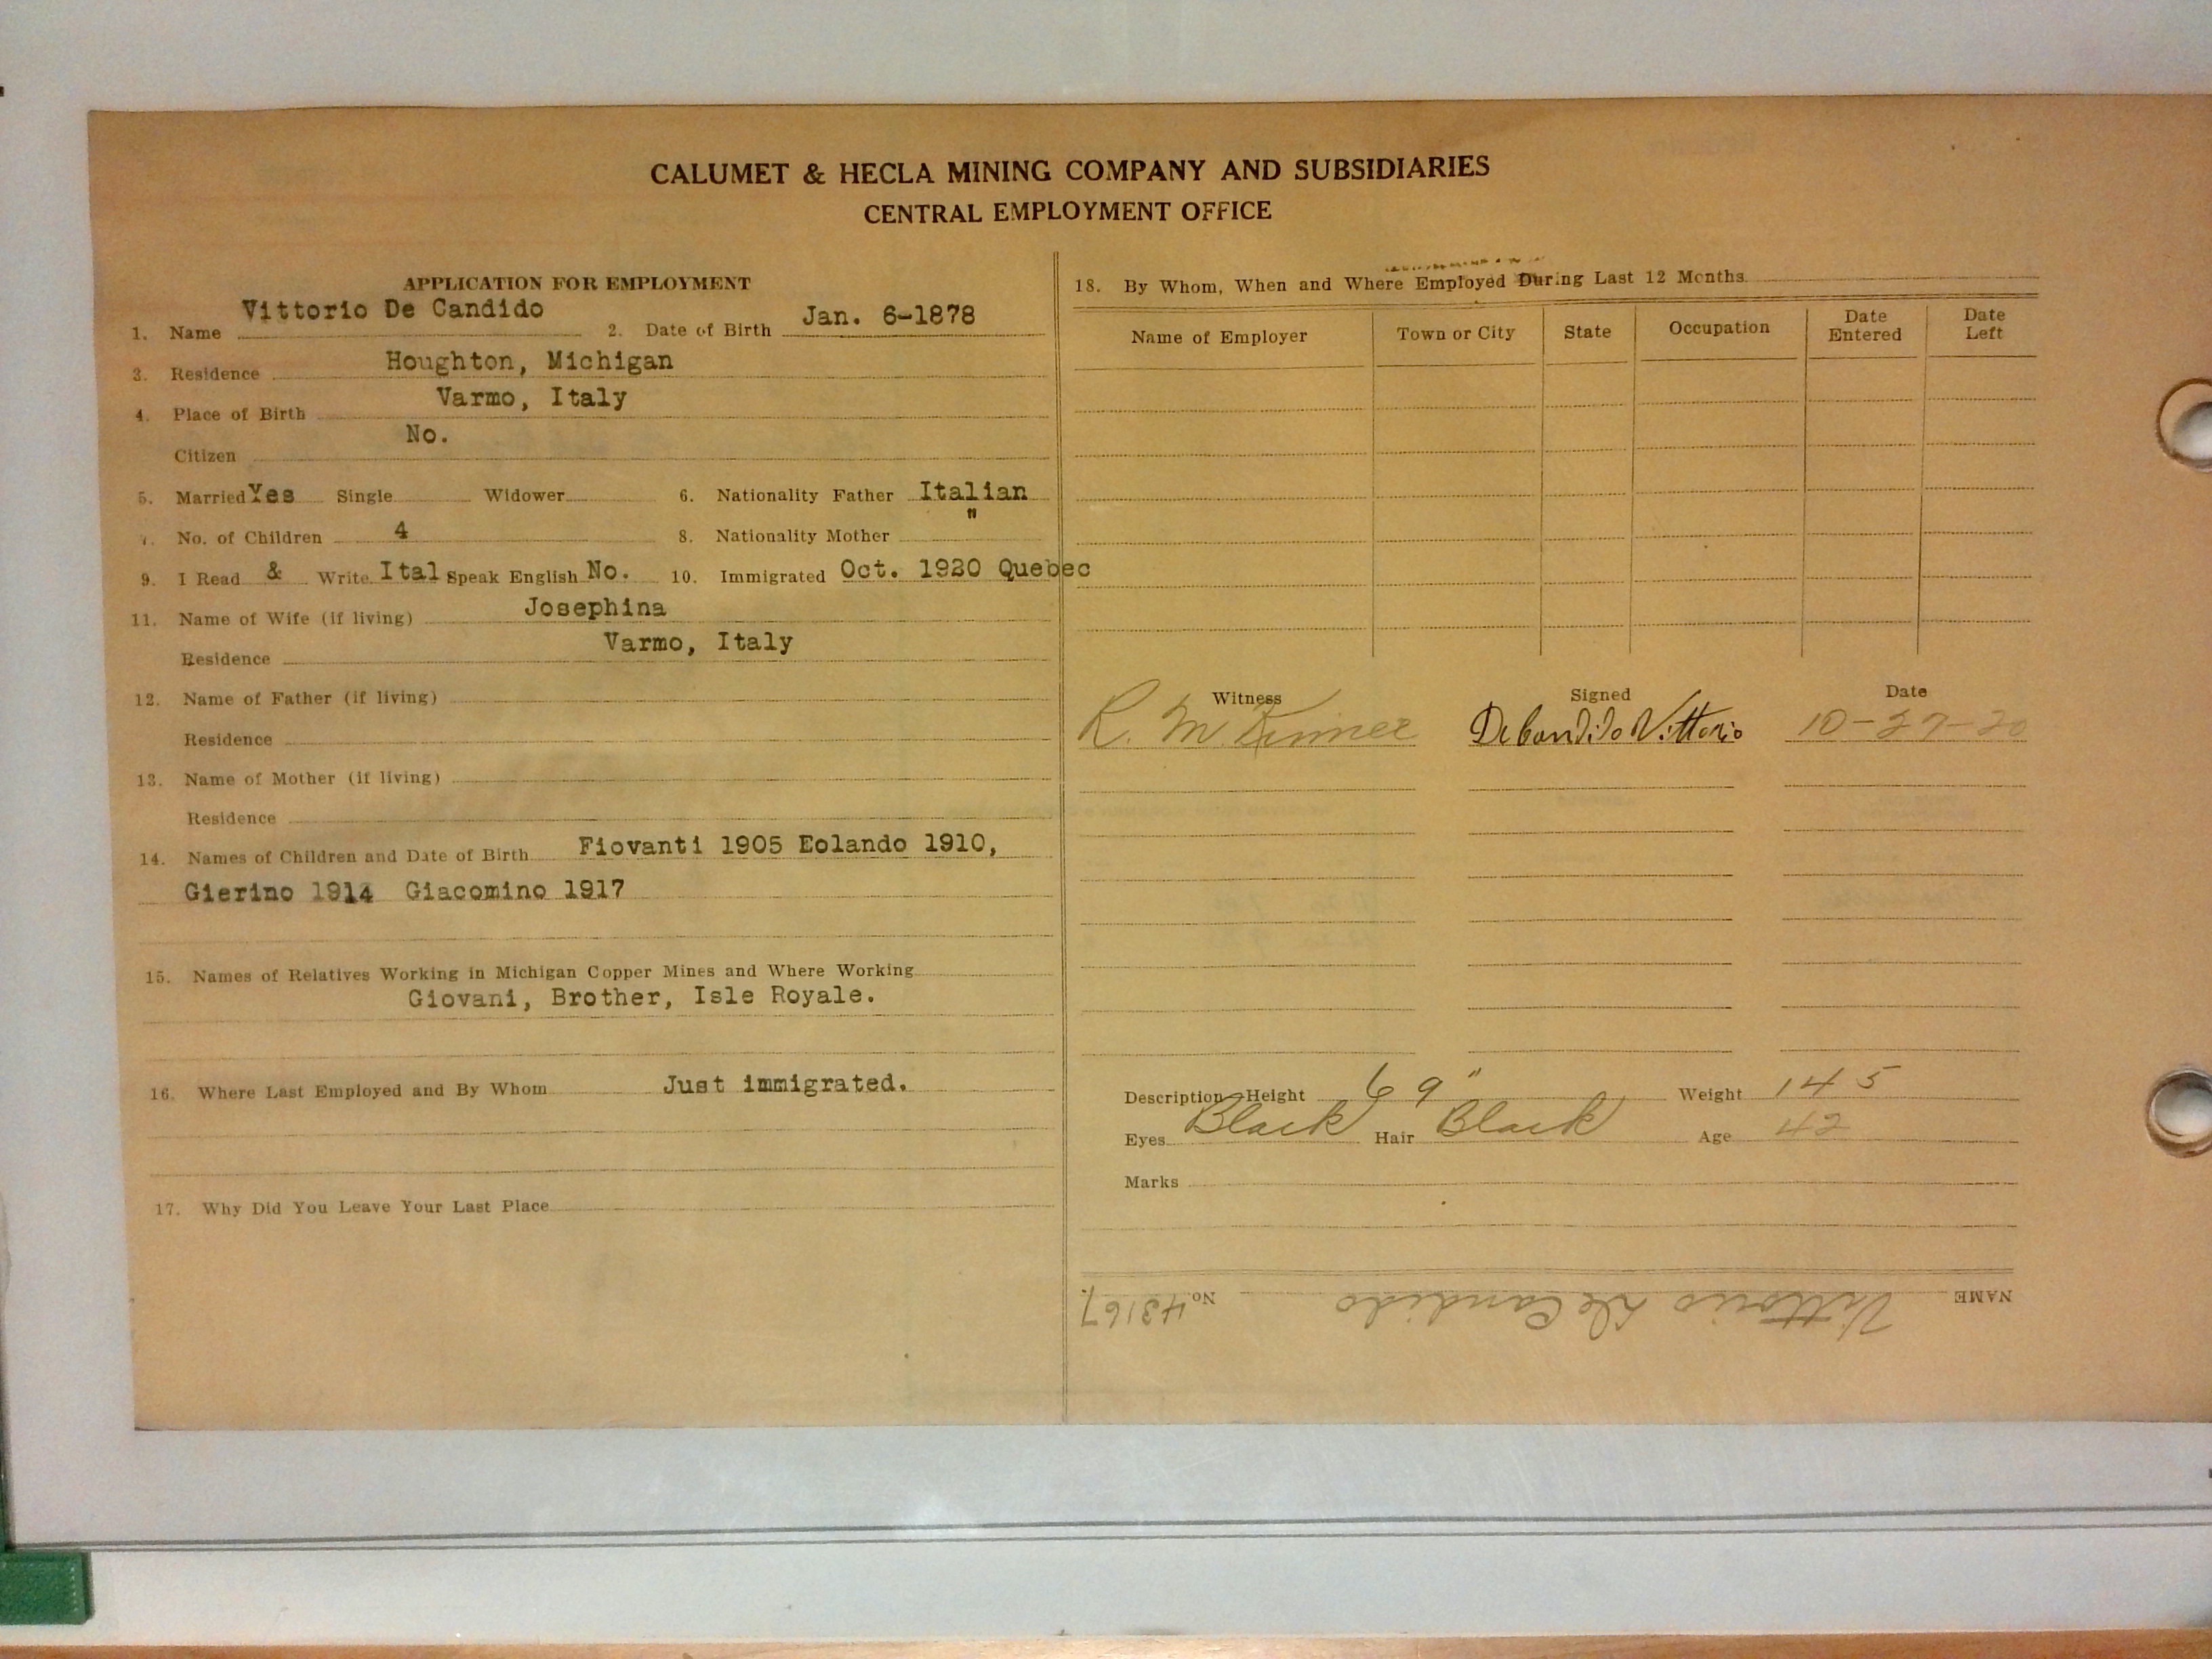 CALUMET & HECLA MINING COMPANY AND SUBSIDIARIES
CENTRAL EMPLOYMENT OFFICE
APPLICATION FOR EMPLOYMENT
1. Name Vittorio De Candido 2. Date of Birth Jan. 6-1878
3. Residence Houghton, Michigan
4. Place of Birth Varmo, Italy
Citizen No.
5. Married Yes Single Widower 6. Nationality Father Italian
7. No. of Children 4 8. Nationality Mother "
9. I Read & Write Ital Speak English No. 10. Immigrated Oct. 1920 Quebec
11. Name of Wife (if living) Josephina
Residence Varmo, Italy
12. Name of Father (if living)
Residence
13. Name of Mother (if living)
Residence
14. Names of Children and Date of Birth Fiovanti 1905 Eolando 1910,
Gierino 1914 Giacomino 1917
15. Names of Relatives Working in Michigan Copper Mines and Where Working
Giovani, Brother, Isle Royale.
16. Where Last Employed and By Whom Just immigrated.
17. Why Did You Leave Your Last Place
18. By Whom, When and Where Employed During Last 12 Months
Name of Employer Town or City State Occupation Date Entered Date Left
Witness Signed Date
R. M. De Candido Vittorio 10-27-20
Description Height 69" Weight 145
Eyes Black Hair Black Age 42
Marks
NAME Vittorio De Candido No. 43167